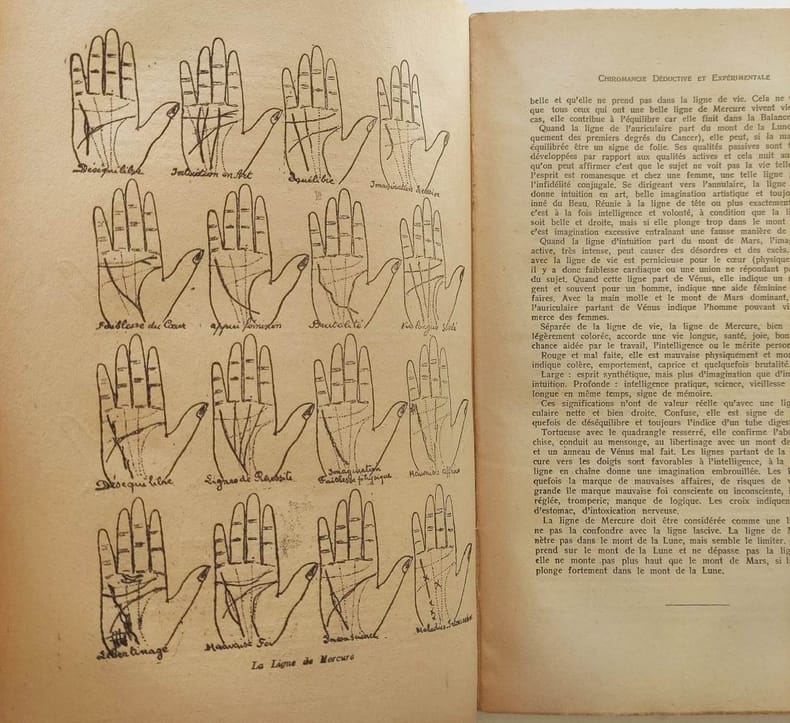 Déséquilibre
Intuition en Art
Equilibre
Imagination
Faiblesse du Cœur
appui féminin
Brutalité
Déséquilibre
Lignes de Réussite
Imagination
Faiblesse physique
Mauvaises affaires
Libertinage
Mauvaise Foi
Inconscience
La Ligne de Mercure
Chiromancie Déductive et Expérimentale
belle et qu'elle ne prend pas dans la ligne de vie. Cela ne
que tous ceux qui ont une belle ligne de Mercure vivent
cas, elle contribue à l'équilibre car elle finit dans la Balance
Quand la ligne de l'auriculaire part du mont de la Lune
quement des premiers degrés du Cancer), elle peut, si la
équilibrée être un signe de folie. Ses qualités passives sont
développées par rapport aux qualités actives et cela nuit
qu'on peut affirmer c'est que le sujet ne voit pas la vie
l'esprit est romanesque et chez une femme, une telle ligne
l'infidélité conjugale. Se dirigeant vers l'annulaire, la ligne
donne intuition en art, belle imagination artistique et
inné du Beau. Réunie à la ligne de tête ou plus exactement
c'est à la fois intelligence et volonté, à condition que la
soit belle et droite, mais si elle plonge trop dans le mont
c'est imagination excessive entraînant une fausse manière de
Quand la ligne d'intuition part du mont de Mars,
active, très intense, peut causer des désordres et des excès.
avec la ligne de vie est pernicieuse pour le cœur (physique
il y a donc faiblesse cardiaque ou une union ne répondant
du sujet. Quand cette ligne part de Vénus, elle indique un
gent et souvent pour un homme, indique une aide féminine
faires. Avec la main molle et le mont de Mars dominant,
l'auriculaire partant de Vénus indique l'homme pouvant
merce des femmes.
Séparée de la ligne de vie, la ligne de Mercure, bien
légèrement colorée, accorde une vie longue, santé, joie,
chance aidée par le travail, l'intelligence ou le mérite
Rouge et mal faite, elle est mauvaise physiquement et
indique colère, emportement, caprice et quelquefois brutalité.
Large : esprit synthétique, mais plus d'imagination que
intuition. Profonde : intelligence pratique, science, vieillesse
longue en même temps, signe de mémoire.
Ces significations n'ont de valeur réelle qu'avec une
culaire nette et bien droite. Confuse, elle est signe de
quefois de déséquilibre et toujours l'indice d'un tube
Tortueuse avec le quadrangle resserré, elle confirme
chise, conduit au mensonge, au libertinage avec un mont de
et un anneau de Vénus mal fait. Les lignes partant de la
cure vers les doigts sont favorables à l'intelligence, à la
ligne en chaîne donne une imagination embrouillée. Les
quefois la marque de mauvaises affaires, de risques de
grande île marque mauvaise foi consciente ou inconsciente,
réglée, tromperie, manque de logique. Les croix
d'estomac, d'intoxication nerveuse.
La ligne de Mercure doit être considérée comme une
ne pas la confondre avec la ligne lascive. La ligne de
nètre pas dans le mont de la Lune, mais semble le limiter.
prend sur le mont de la Lune et ne dépasse pas la
elle ne monte pas plus haut que le mont de Mars, si
plonge fortement dans le mont de la Lune.